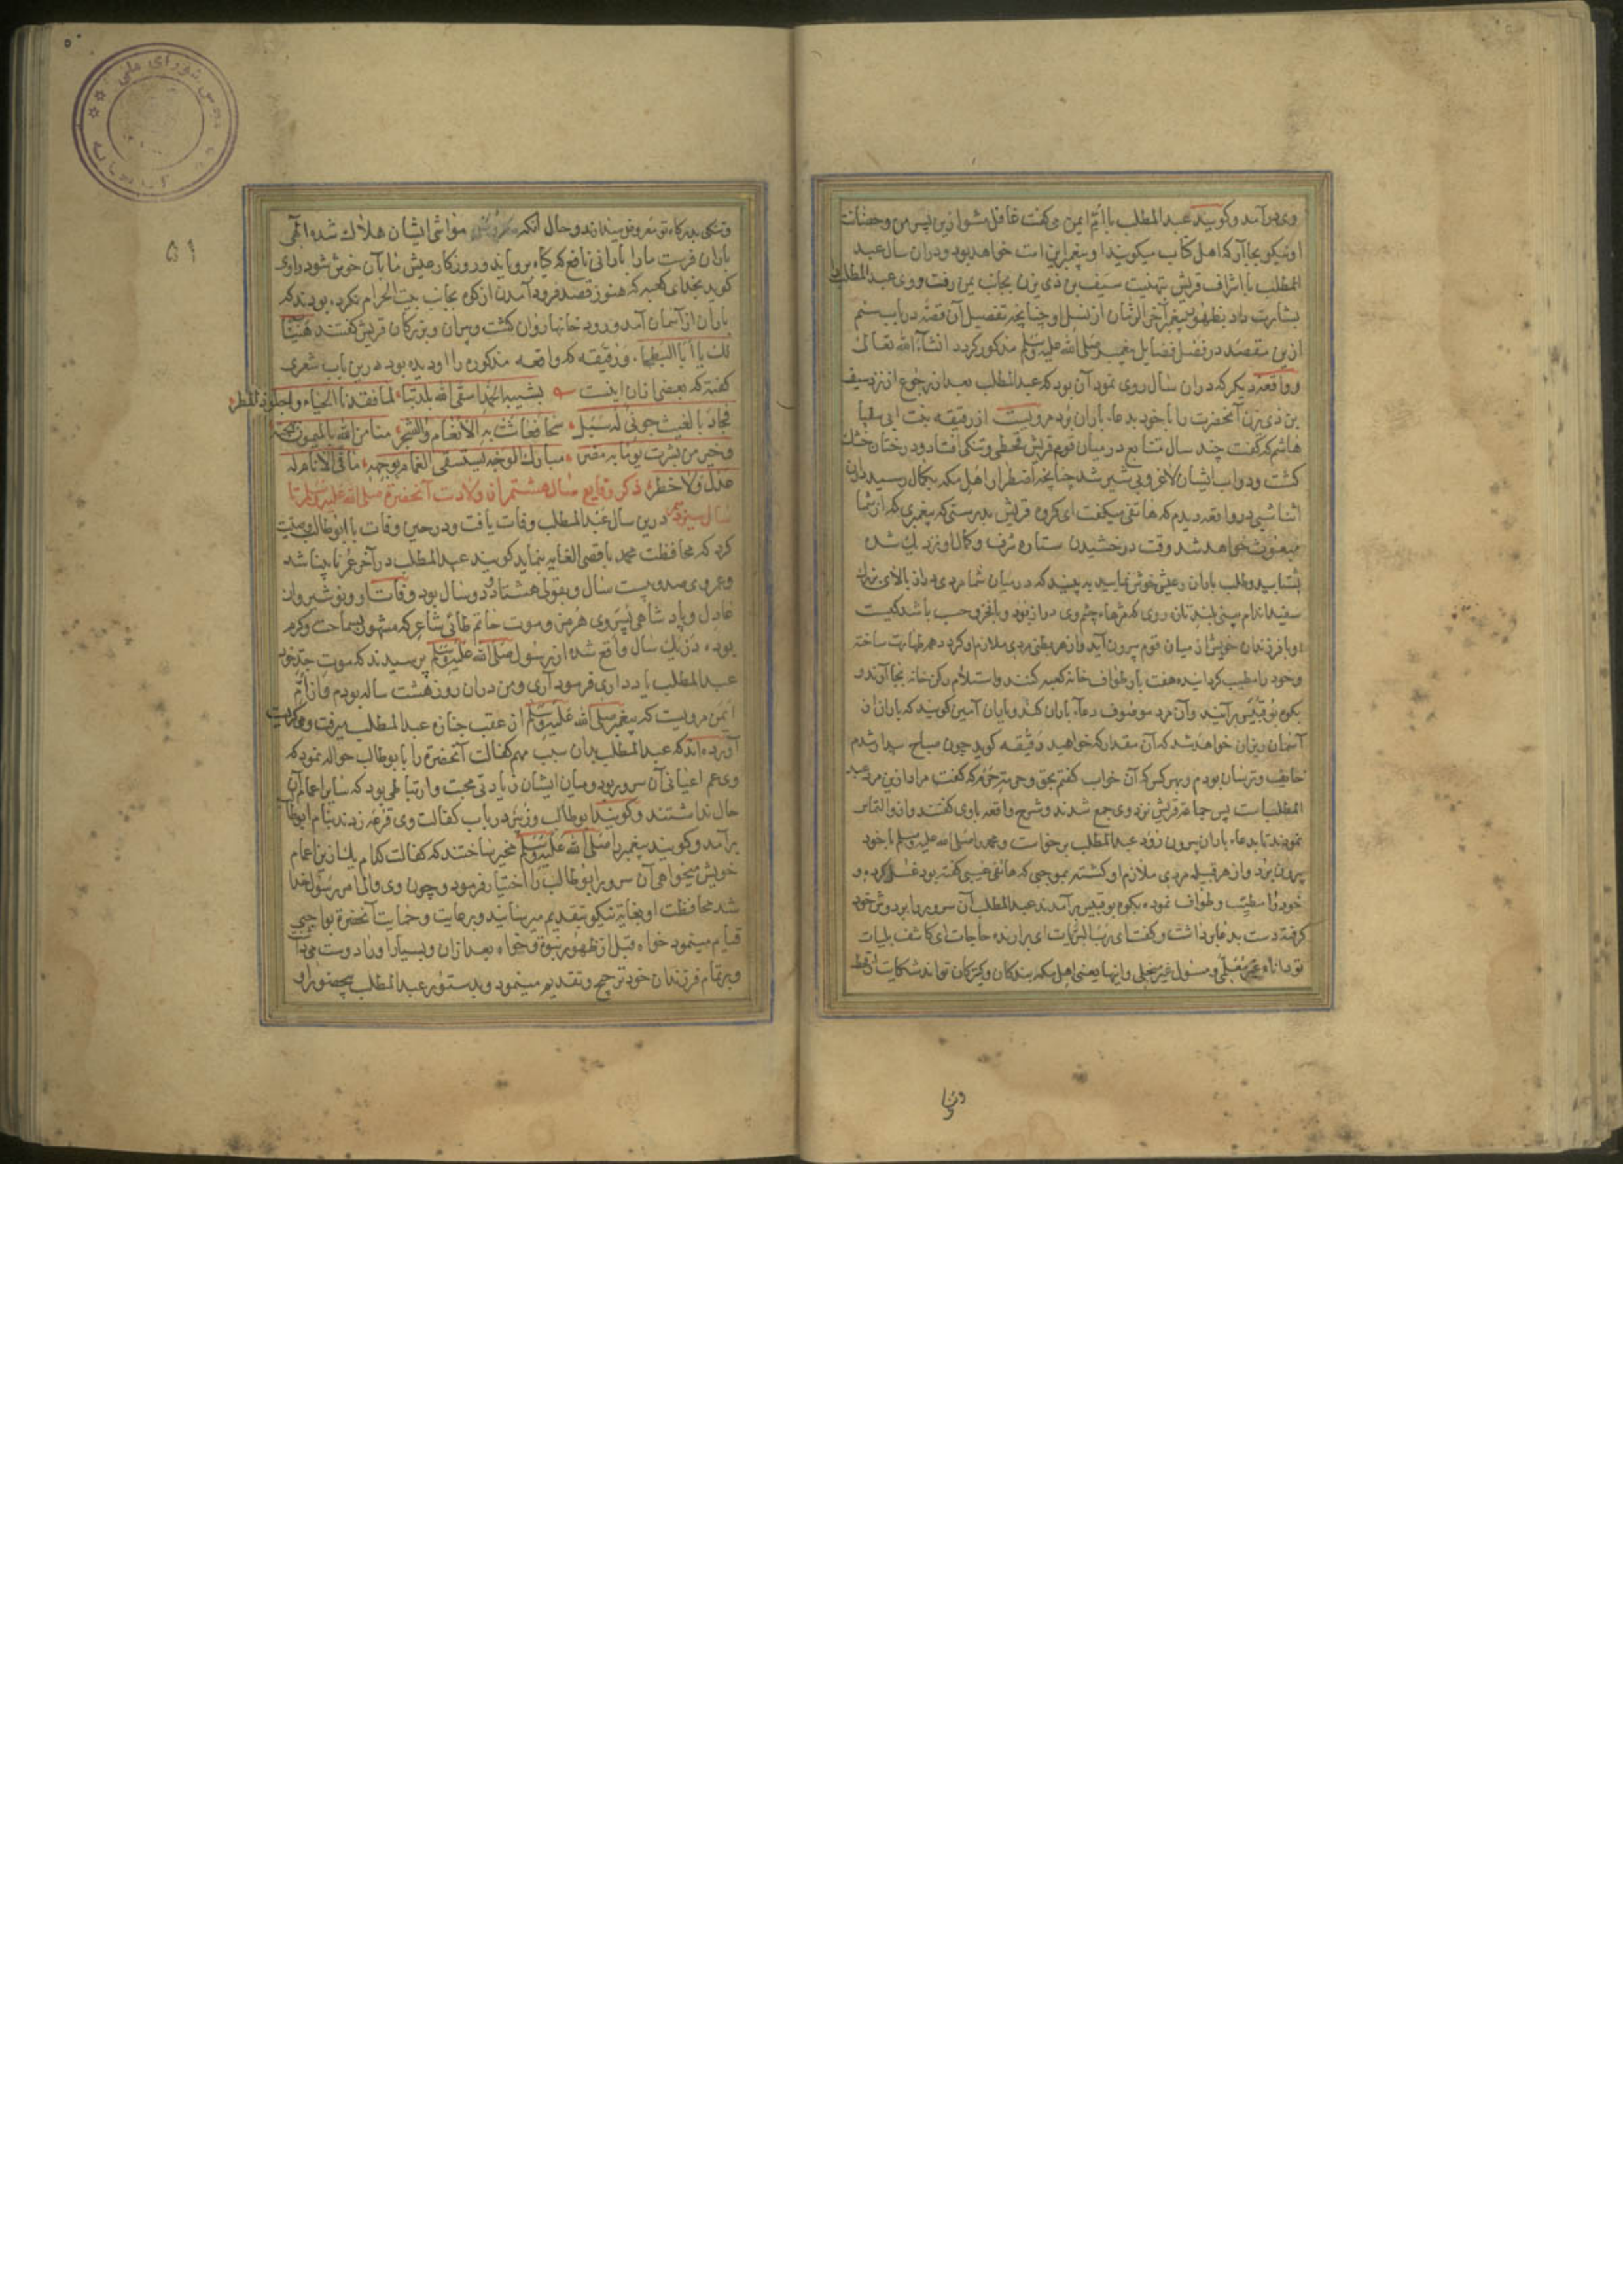 وی درآمد و کویند عبد المطلب با ام ایمن می کفت غافل مشو ازین پس من و حضانت
او نیکو بجا آر که اهل کتاب میکویند او پیغمبر این امت خواهد بود و دران سال عبد
المطلب با اشراف قریش بتهنیت سیف بن ذی یزن بجانب یمن رفت و وی عبد المطلب را
بشارت داد بظهور پیغمبر آخر الزمان از نسل او چنانچه تفصیل آن قصه در باب ششم
ازین مقصد در فصل فضایل پیغمبر صلی الله علیه وسلم مذکور کردد انشاء الله تعالی
و واقعه دیکر که دران سال روی نمود آن بود که عبد المطلب بعد از رجوع از نزد سیف
بن ذی یزن آنحضرت را با خود بدعاء باران برد مرویست از رقیقه بنت ابی صیفی
هاشم که کفت چند سال متتابع در میان قوم قریش قحطی و تنکی افتاد و درختان خشک
کشت و دواب ایشان لاغر و بی شیر شد چنانچه اضطرار اهل مکه بکمال رسید دران
اثنا شبی در واقعه دیدم که هاتفی میکفت ای کروه قریش بدرستی که پیغمبری که از شما
مبعوث خواهد شد وقت درخشیدن ستاره شرف و کمال او نزدیک شده
بشتابید و طلب باران و عیش خوش نمایید به بینید که در میان شما مردی دراز بالای بزرک
سفید اندام بینی بلند تازه روی که مژهاء چشم وی دراز بود و با فخر و حسب باشد کیست
او با فرزندان خویش از میان قوم بیرون آید و از هر بطنی مردی ملازم او کردد همه طهارت ساخته
و خود را مطیب کردانیده هفت بار طواف خانه کعبه کنند و استلام رکن خانه بجا آرند و
بکوه بوقبیس برآیند و آن مرد موصوف دعاء باران کند و یاران آمین کویند که باران از
آسمان ریزان خواهد شد که آن مقدار که خواهید رقیقه کوید چون صباح بیدار شدم
خایف و ترسان بودم و بهر کس که آن خواب کفتم بحق و حی متر حرم که کفت مراد ازین مرد عبد
المطلب است پس جماعه قریش نزد وی جمع شدند و شرح واقعه باوی کفتند و ازو التماس
نمودند تا بدعاء باران بیرون رود عبد المطلب برخواست و محمد را صلی الله علیه وسلم با خود
بیرون برد و از هر قبیله مردی ملازم او کشته بموجبی که هاتف غیبی کفته بود غسل کرده و
خود را مطیب و طواف نموده بکوه بوقبیس برآمدند عبد المطلب آن سرور را بر دوش خود
کرفته دست بدعا برداشت و کفت ای رب البریات ای برارنده حاجات ای کاشف بلیات
تو دانای غیر معلم و مسئول غیر مبخلی و اینها یعنی اهل مکه بندکان و کنیزکان تو اند شکایت از قحط
و تنکی
و تنکی بدرکاه تو معروض میدارند و حال آنکه مواشی ایشان هلاک شده الهی
باران فرست ما را بارانی نافع که کیاه برویاند و روزکار و عیش ما بآن خوش شود راوی
کوید بخدای کعبه که هنوز قصد فرود آمدن از کوه بجانب بیت الحرام نکرده بودند که
باران از آسمان آمد و رودخانها روان کشت و پیران و بزرکان قریش کفتند هنیئا
لک یا ابا البطحاء و رقیقه که واقعه مذکوره را او دیده بود درین باب شعری
کفته که بعضی ازان اینست بشیبة الحمد اسقی الله بلدتنا لما فقدنا الحیاء و اجلوذ المطر
فجاد بالغیث جونی له سبل سحا فعاشت به الانعام والشجر منا من الله بالمیمون طایره
و خیر من بشرت یوما به مضر مبارک الوجه یستسقی الغمام بوجهه ما فی الانام له
عدل ولا خطر ذکر وقایع سال هشتم از ولادت آنحضرة صلی الله علیه وسلم تا
سال سیزدهم درین سال عبد المطلب وفات یافت و در حین وفات با ابو طالب وصیت
کرد که محافظت محمد باقصی الغایه بنماید کویند عبد المطلب در آخر عمر نابینا شد
و عمر وی صد و بیست سال و بقولی هشتاد و دو سال بود و وفات او و نوشیروان
عادل و پادشاهی پسر وی هرمز و موت حاتم طائی شاعر که مشهور بسماحت و کرم
بوده در یک سال واقع شده از رسول صلی الله علیه وسلم پرسیدند که موت جد خود
عبد المطلب یاد داری فرمود آری و من دران روز هشت ساله بودم و از ام
ایمن مرویست که پیغمبر صلی الله علیه وسلم از عقب جنازه عبد المطلب میرفت و میکریست
آورده اند که عبد المطلب بدان سبب مهم کفالت آنحضرة را بابو طالب حواله نمود که
وی عم اعیانی آن سرور بود و میان ایشان زیادتی محبت و ارتباطی بود که سایر اعمام آن
حال نداشتند و کویند ابو طالب و زبیر در باب کفالت وی قرعه زدند بنام ابو طالب
برآمد و کویند پیغمبر را صلی الله علیه وسلم مخیر ساختند که کفالت کدام یک ازین اعمام
خویش میخواهی آن سرور ابو طالب را اختیار فرمود و چون وی والی امر رسول خدا
شد محافظت او بغایة نیکو بتقدیم میرسانید و برعایت و حمایت آنحضرة بواجبی
قیام مینمود خواه قبل از ظهور نبوة و خواه بعد ازان و بسیار او را دوست میداشت
و بر تمام فرزندان خود ترجیح و تقدیم مینمود و بدستور عبد المطلب بی حضور او
۵۱